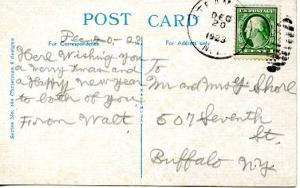 POST CARD
For Correspondence
For Address only
Dec 20 - 23
Here Wishing you
a merry Xmas and
a Happy new year
to both of you
From Walt
To
Mr and Mrs J Shore
507 Seventh
St.
Buffalo N.Y.
DEC
20
1923
N.Y.